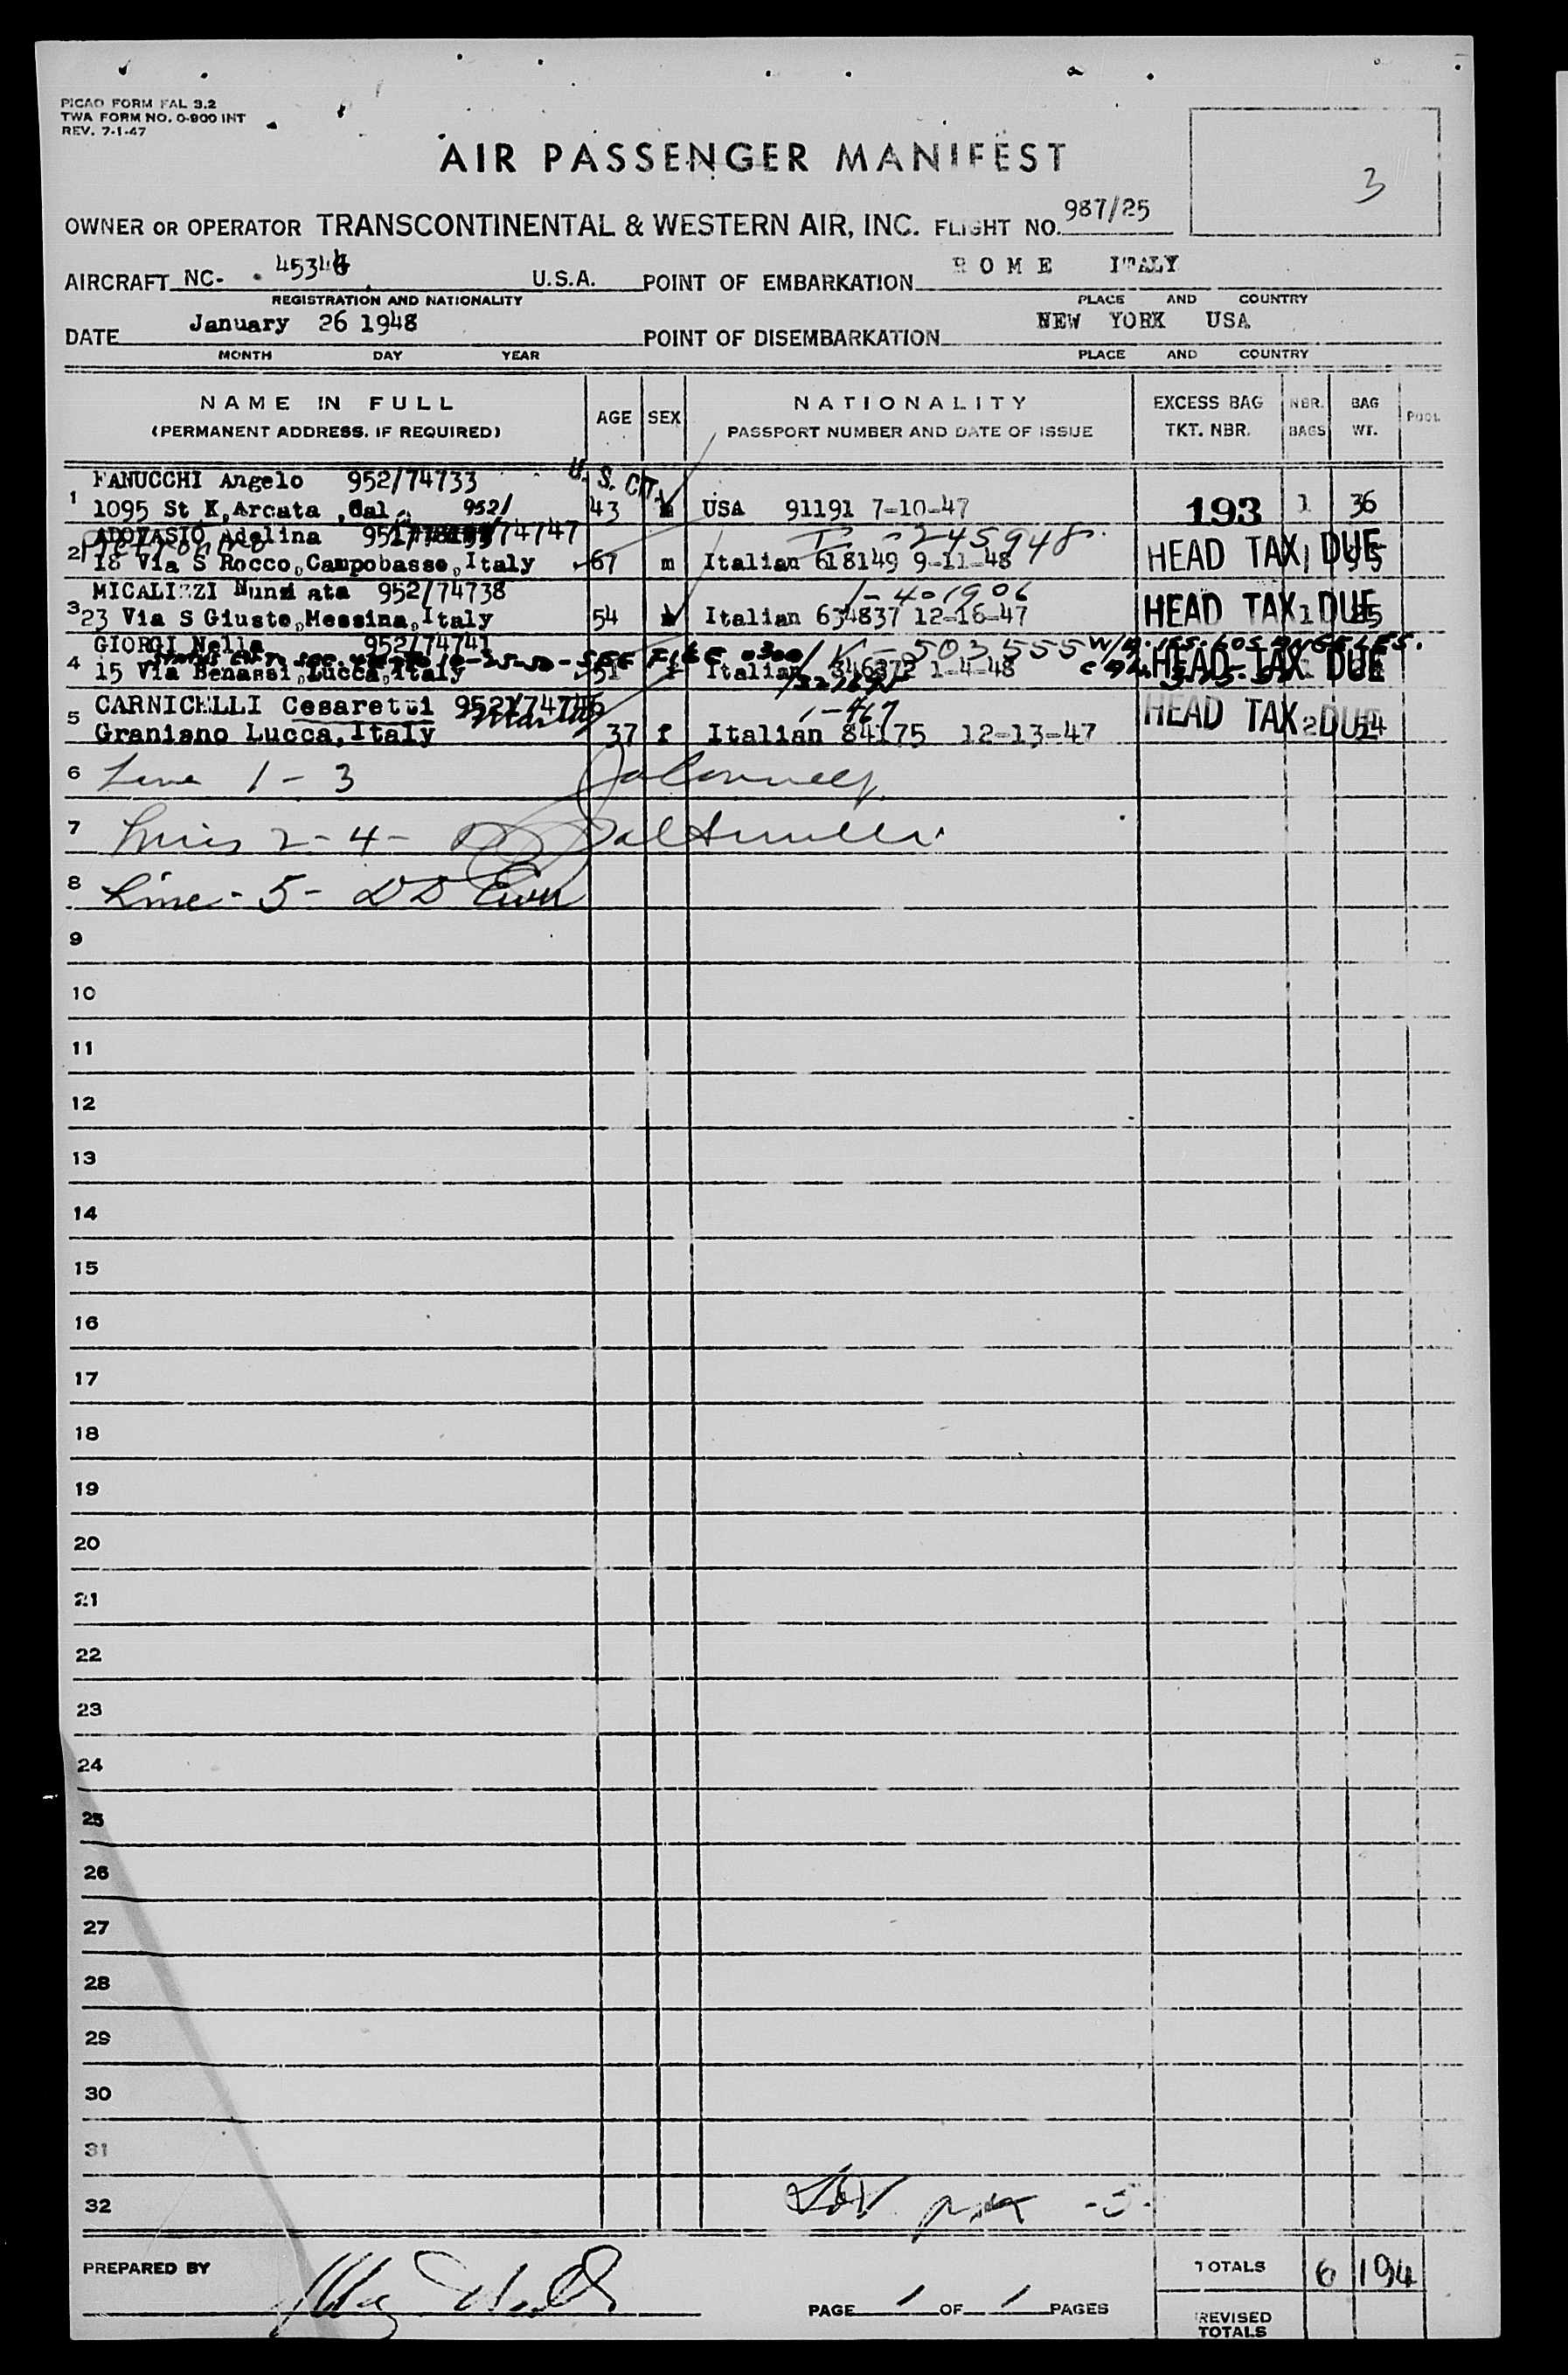 PICAO FORM FAL 3.2
TWA FORM NO. O-900 INT
REV. 7-1-47
AIR PASSENGER MANIFEST
3
OWNER OR OPERATOR TRANSCONTINENTAL & WESTERN AIR, INC. FLIGHT NO. 987/25
AIRCRAFT NC- U.S.A. POINT OF EMBARKATION ROME ITALY
REGISTRATION AND NATIONALITY PLACE AND COUNTRY
DATE January 26 1948 POINT OF DISEMBARKATION NEW YORK USA
MONTH DAY YEAR PLACE AND COUNTRY
NAME IN FULL AGE SEX NATIONALITY EXCESS BAG NBR. BAG POOL
(PERMANENT ADDRESS, IF REQUIRED) PASSPORT NUMBER AND DATE OF ISSUE TKT. NBR. BAGS WT.
FANUCCHI Angelo 952/74733 U.S. CIT.
1 1095 St K, Arcata, Cal 43 USA 91191 7-10-47 193 1 36
ADOVASIO Adelina 952/ 74747 -245948
2 18 Via S Rocco, Campobasso, Italy 67 m Italian 618149 9-11-48 HEAD TAX DUE 1
MICALIZZI Nunziata 952/74738 1-401906
3 23 Via S Giusto, Messina, Italy 54 Italian 634837 12-16-47 HEAD TAX DUE 1
GIORGI Nella 952/74741 V-503555 W/A ISS. LOS ANGELES.
4 15 Via Benassi, Lucca, Italy 51 f Italian 1-4-48 HEAD TAX DUE
CARNICELLI Cesaretti 952/74746 1-467
5 Graniano Lucca, Italy 37 f Italian 84175 12-13-47 HEAD TAX DUE 2 54
6 Line 1-3
7 Lines 2-4-
8 Line-5- DD
9
10
11
12
13
14
15
16
17
18
19
20
21
22
23
24
25
26
27
28
29
30
31
32
PREPARED BY TOTALS 6 194
PAGE 1 OF 1 PAGES
REVISED TOTALS